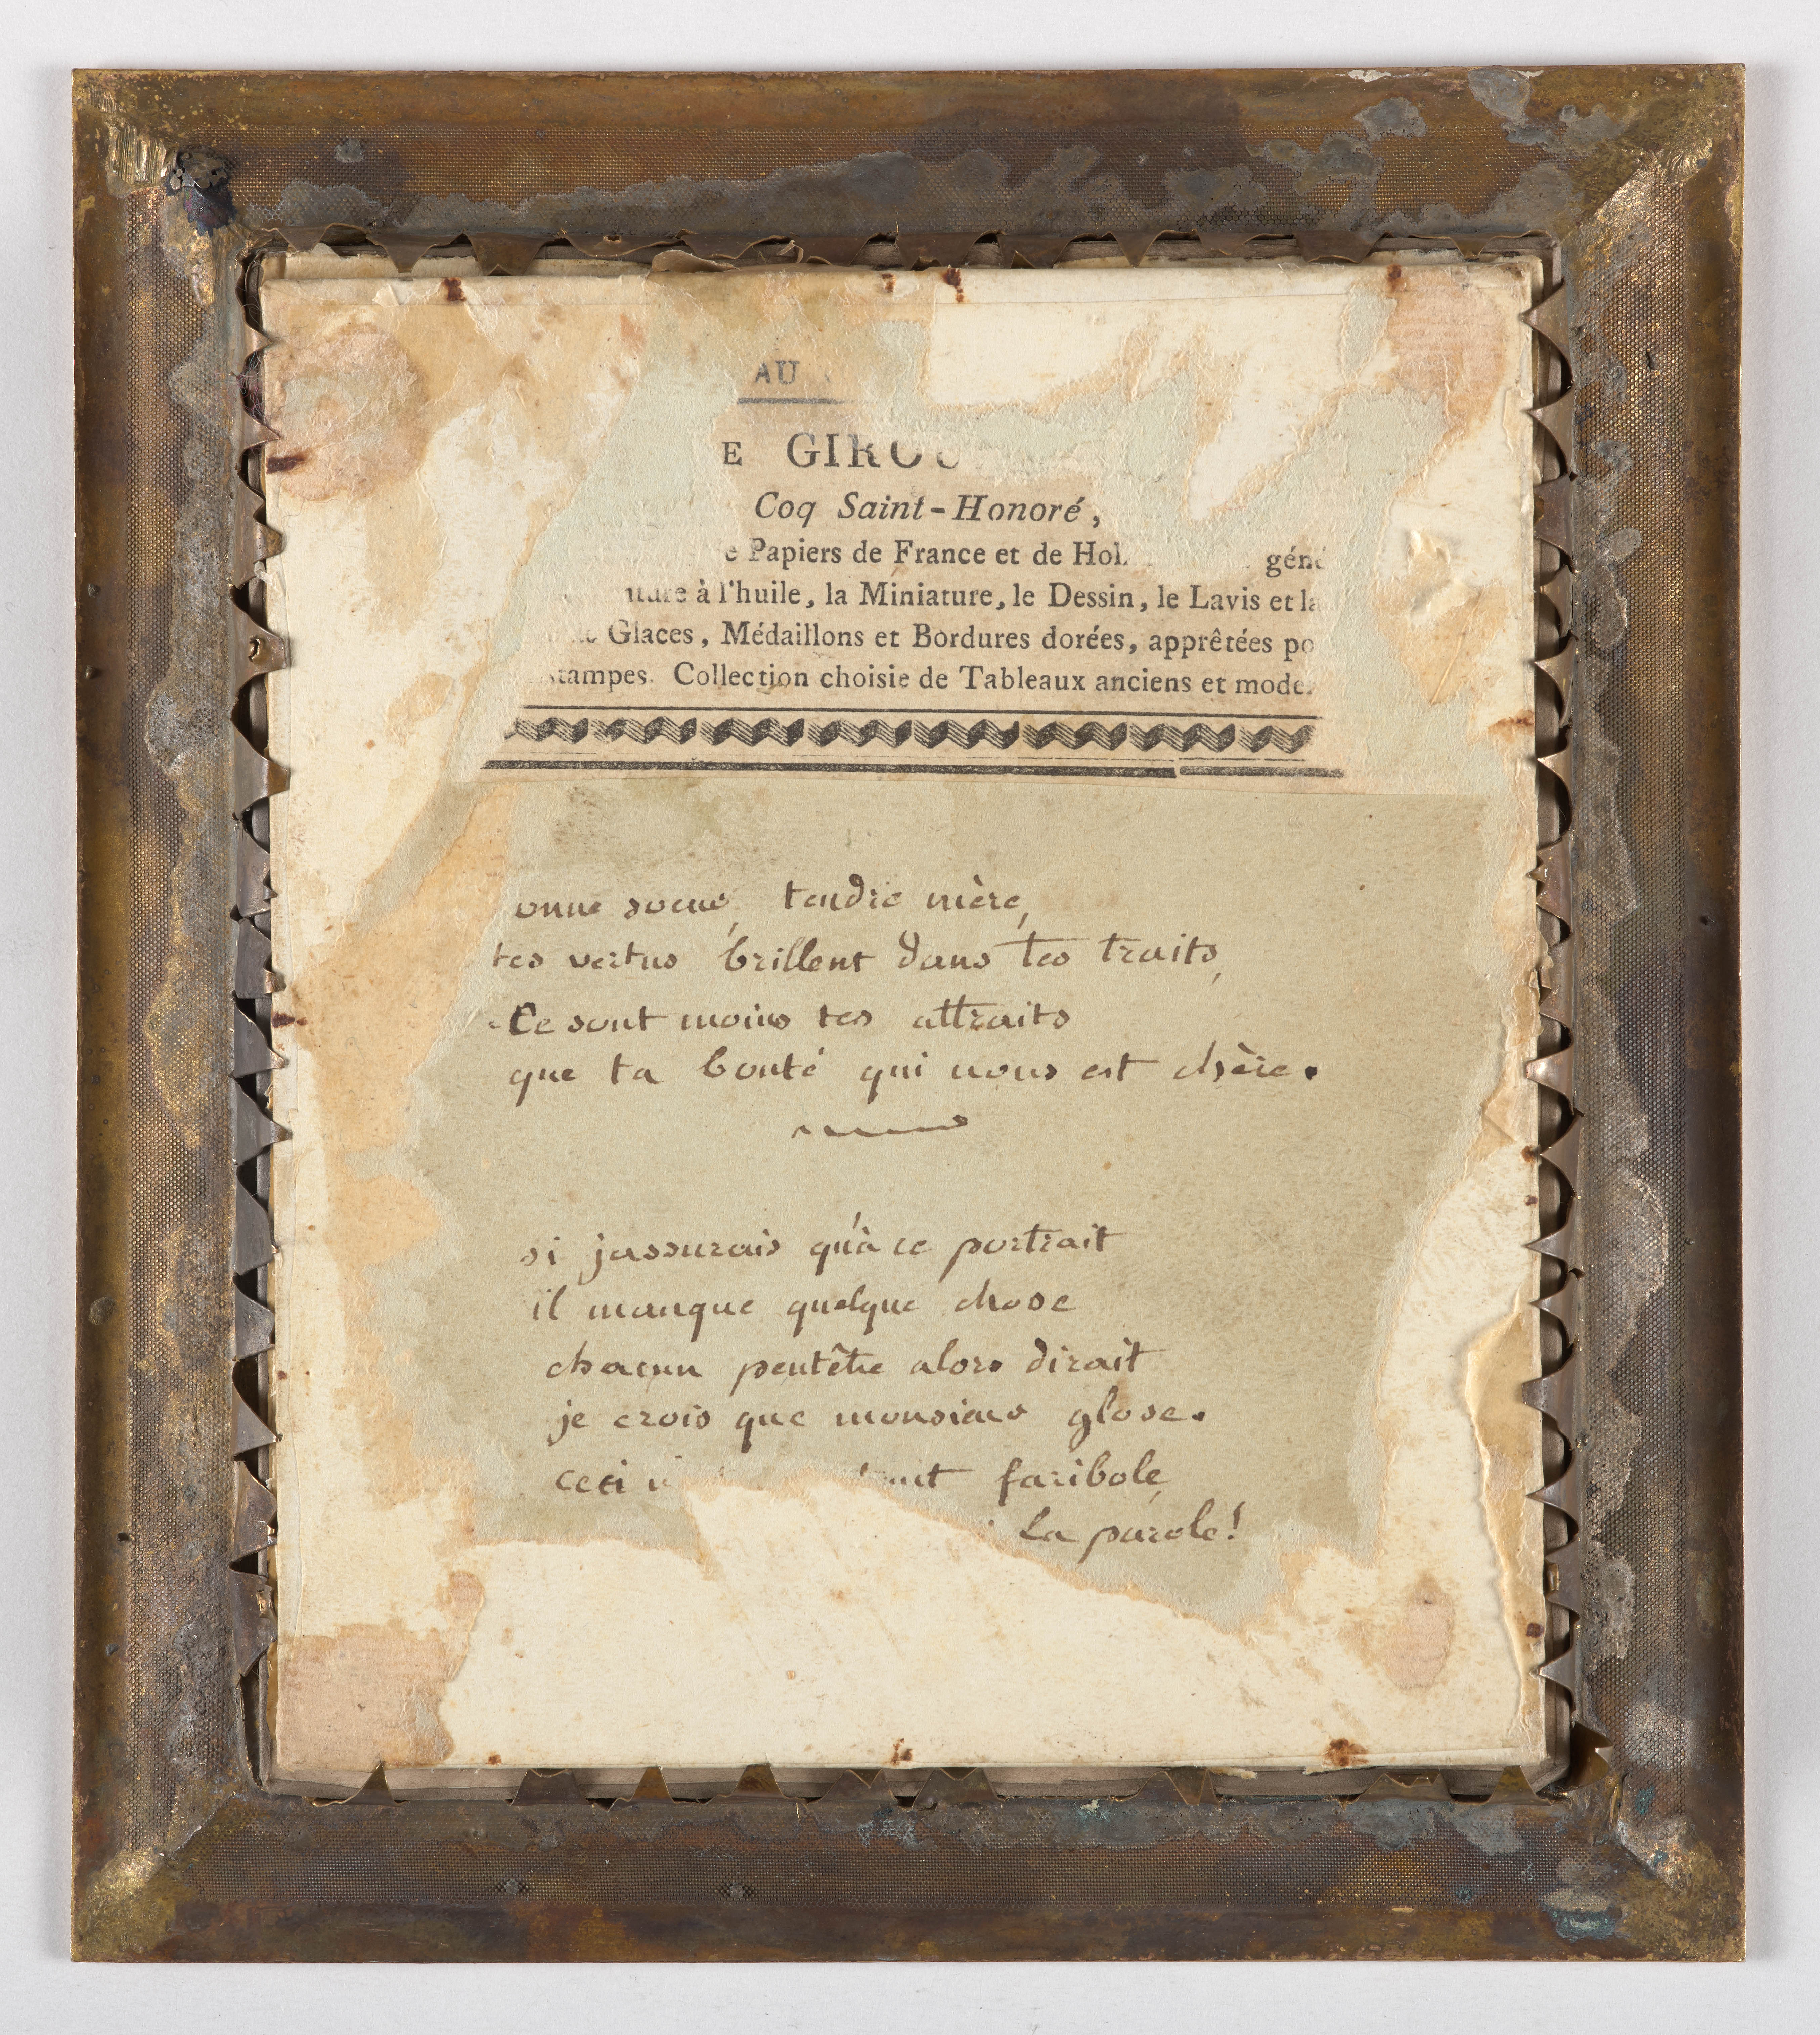 AU
E GIROU
Coq Saint-Honoré,
e Papiers de France et de Hol géné
ture à l'huile, la Miniature, le Dessin, le Lavis et la
Glaces, Médaillons et Bordures dorées, apprêtées po
stampes. Collection choisie de Tableaux anciens et mode
onne soeur, tendre mère,
tes vertus brillent dans tes traits,
Ce sont moins tes attraits
que ta bonté qui nous est chère.
si jassurais qu'à ce portrait
il manque quelque chose
chacun peutêtre alors dirait
je crois que monsieur glose.
ceci faribole,
La parole!